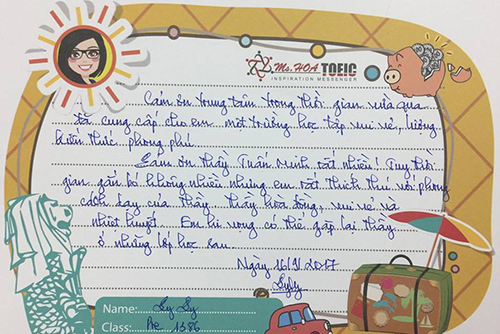 Ms.HOA TOEIC
INSPIRATION MESSENGER
Cảm ơn trung tâm trong thời gian vừa qua
đã cung cấp cho em một trường học tập vui vẻ, lượng
kiến thức phong phú.
Cảm ơn thầy Tuấn Minh rất nhiều! Tuy thời
gian gắn bó không nhiều nhưng em rất thích thú với phong
cách dạy của thầy. Thầy hòa đồng, vui vẻ và
nhiệt huyết. Em hi vọng có thể gặp lại thầy
ở những lớp học sau.
Ngày 16/9/2017
Name: Ly Ly
Class: Pre 1386